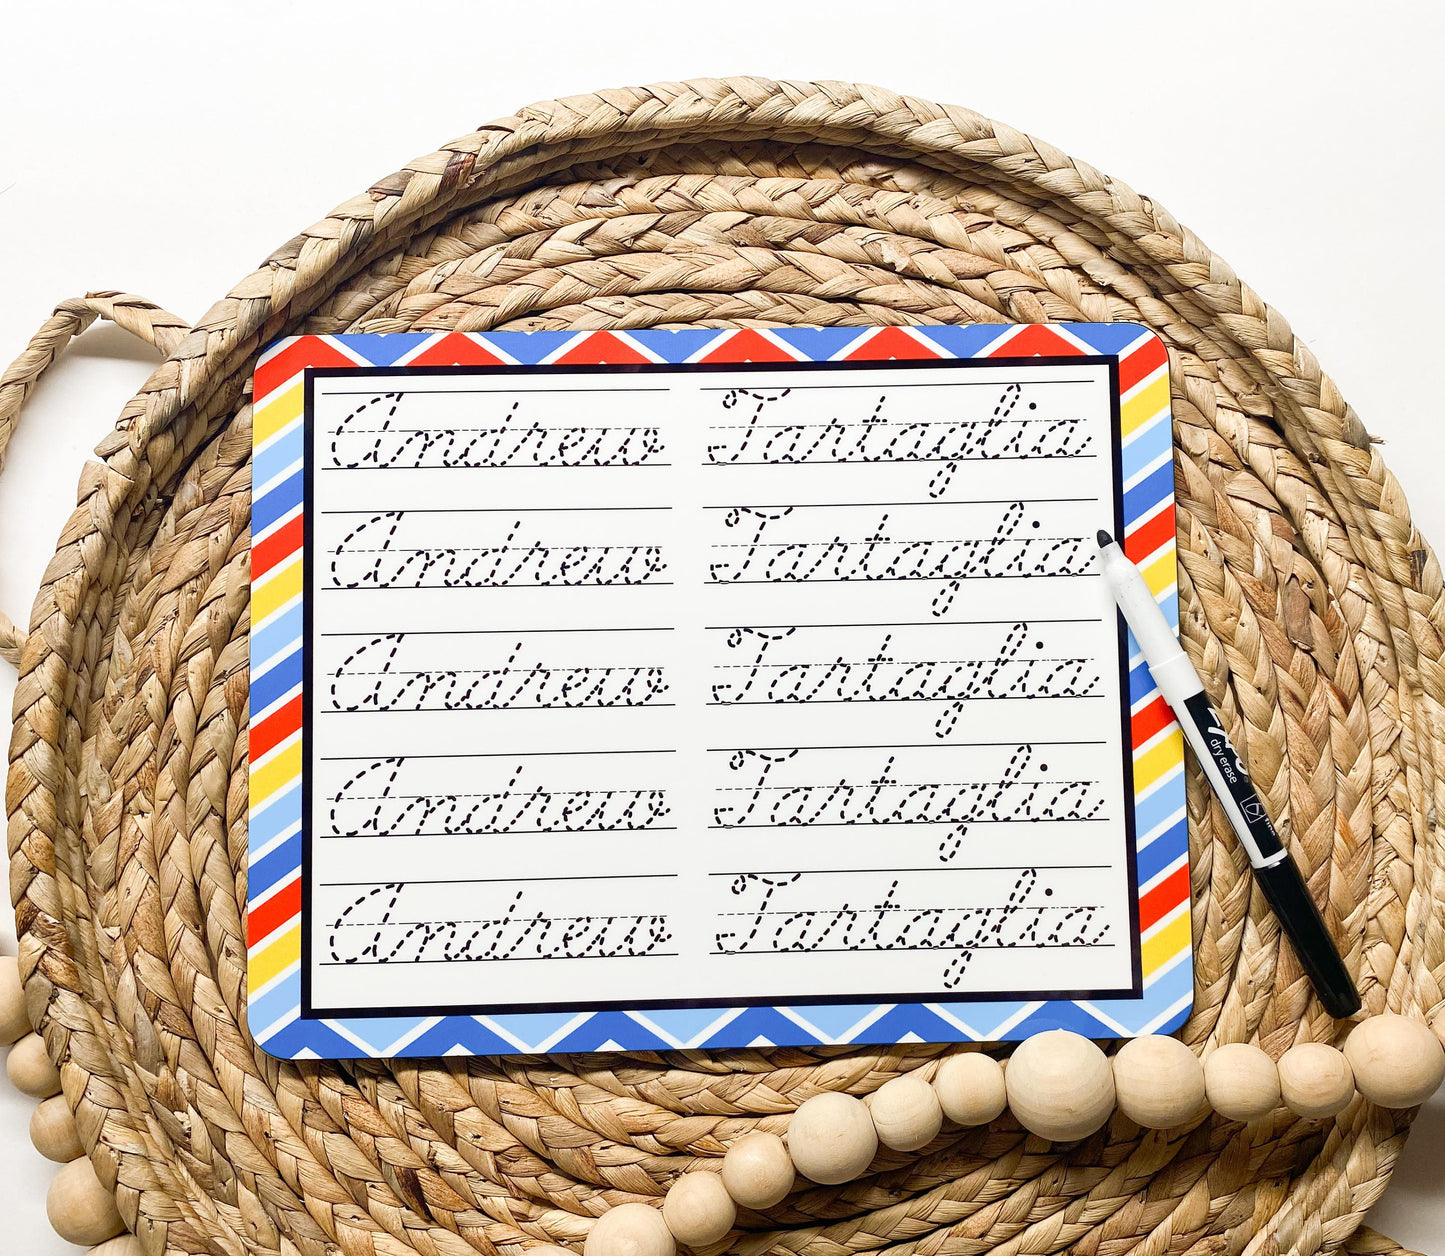 Andrew Tartaglia
Andrew Tartaglia
Andrew Tartaglia
Andrew Tartaglia
Andrew Tartaglia
dry erase